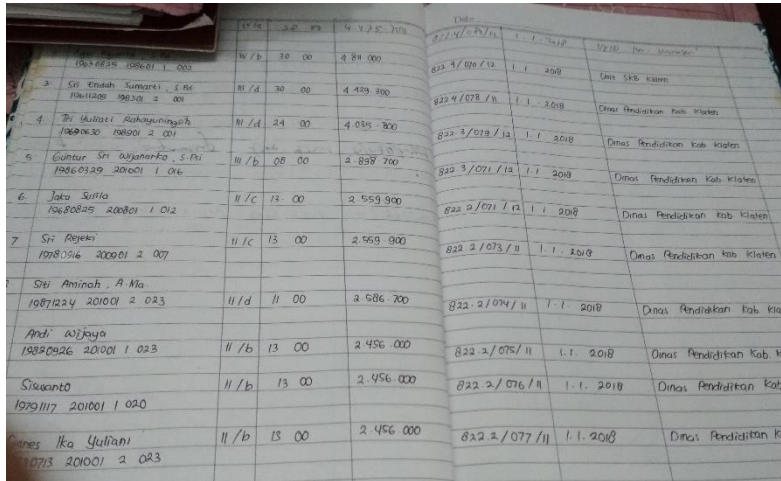 4 475 700 822.4/ 1.1.2018
19630825 198601 1 002 IV/b 30 00 4 811 000 822 4/070/12 1 1 2018 Unit SKB Klaten
3 Sri Endah Sumarti, S.Pd
19611205 198301 2 001 III/d 30 00 4 429 300 822 4/078/11 1.1.2018 Dinas Pendidikan Kab Klaten
4 Tri Yuliati Rahayuningsih
19690630 198901 2 001 III/d 24 00 4.035.800 822 3/079/12 1.1 2018 Dinas Pendidikan Kab Klaten
5 Guntur Sri Wijanarko, S.Pd
19860329 201001 1 016 III/b 08 00 2.898 700 822 3/071/12 1.1 2018 Dinas Pendidikan Kab Klaten
6 Jaka Susila
19680825 200801 1 012 II/c 13 00 2 559 900 822 2/071/12 1 1 2018 Dinas Pendidikan Kab Klaten
7 Sri Rejeki
19780916 200901 2 007 II/c 13 00 2.559 900 822 2/073/11 1.1.2018 Dinas Pendidikan Kab Klaten
Siti Aminah, A.Ma
19871224 201001 2 023 II/d 11 00 2.586.700 822.2/074/11 1.1.2018 Dinas Pendidikan Kab
Andi Wijaya
19820926 201001 1 023 II/b 13 00 2.456.000 822.2/075/11 1.1.2018 Dinas Pendidikan Kab.
Siswanto II/b 13 00 2.456.000 822.2/076/11 1.1.2018 Dinas Pendidikan Kab
19791117 201001 1 020
Ika Yuliani II/b 13 00 2.456 000 822.2/077/11 1.1.2018 Dinas Pendidikan
0713 201001 2 023